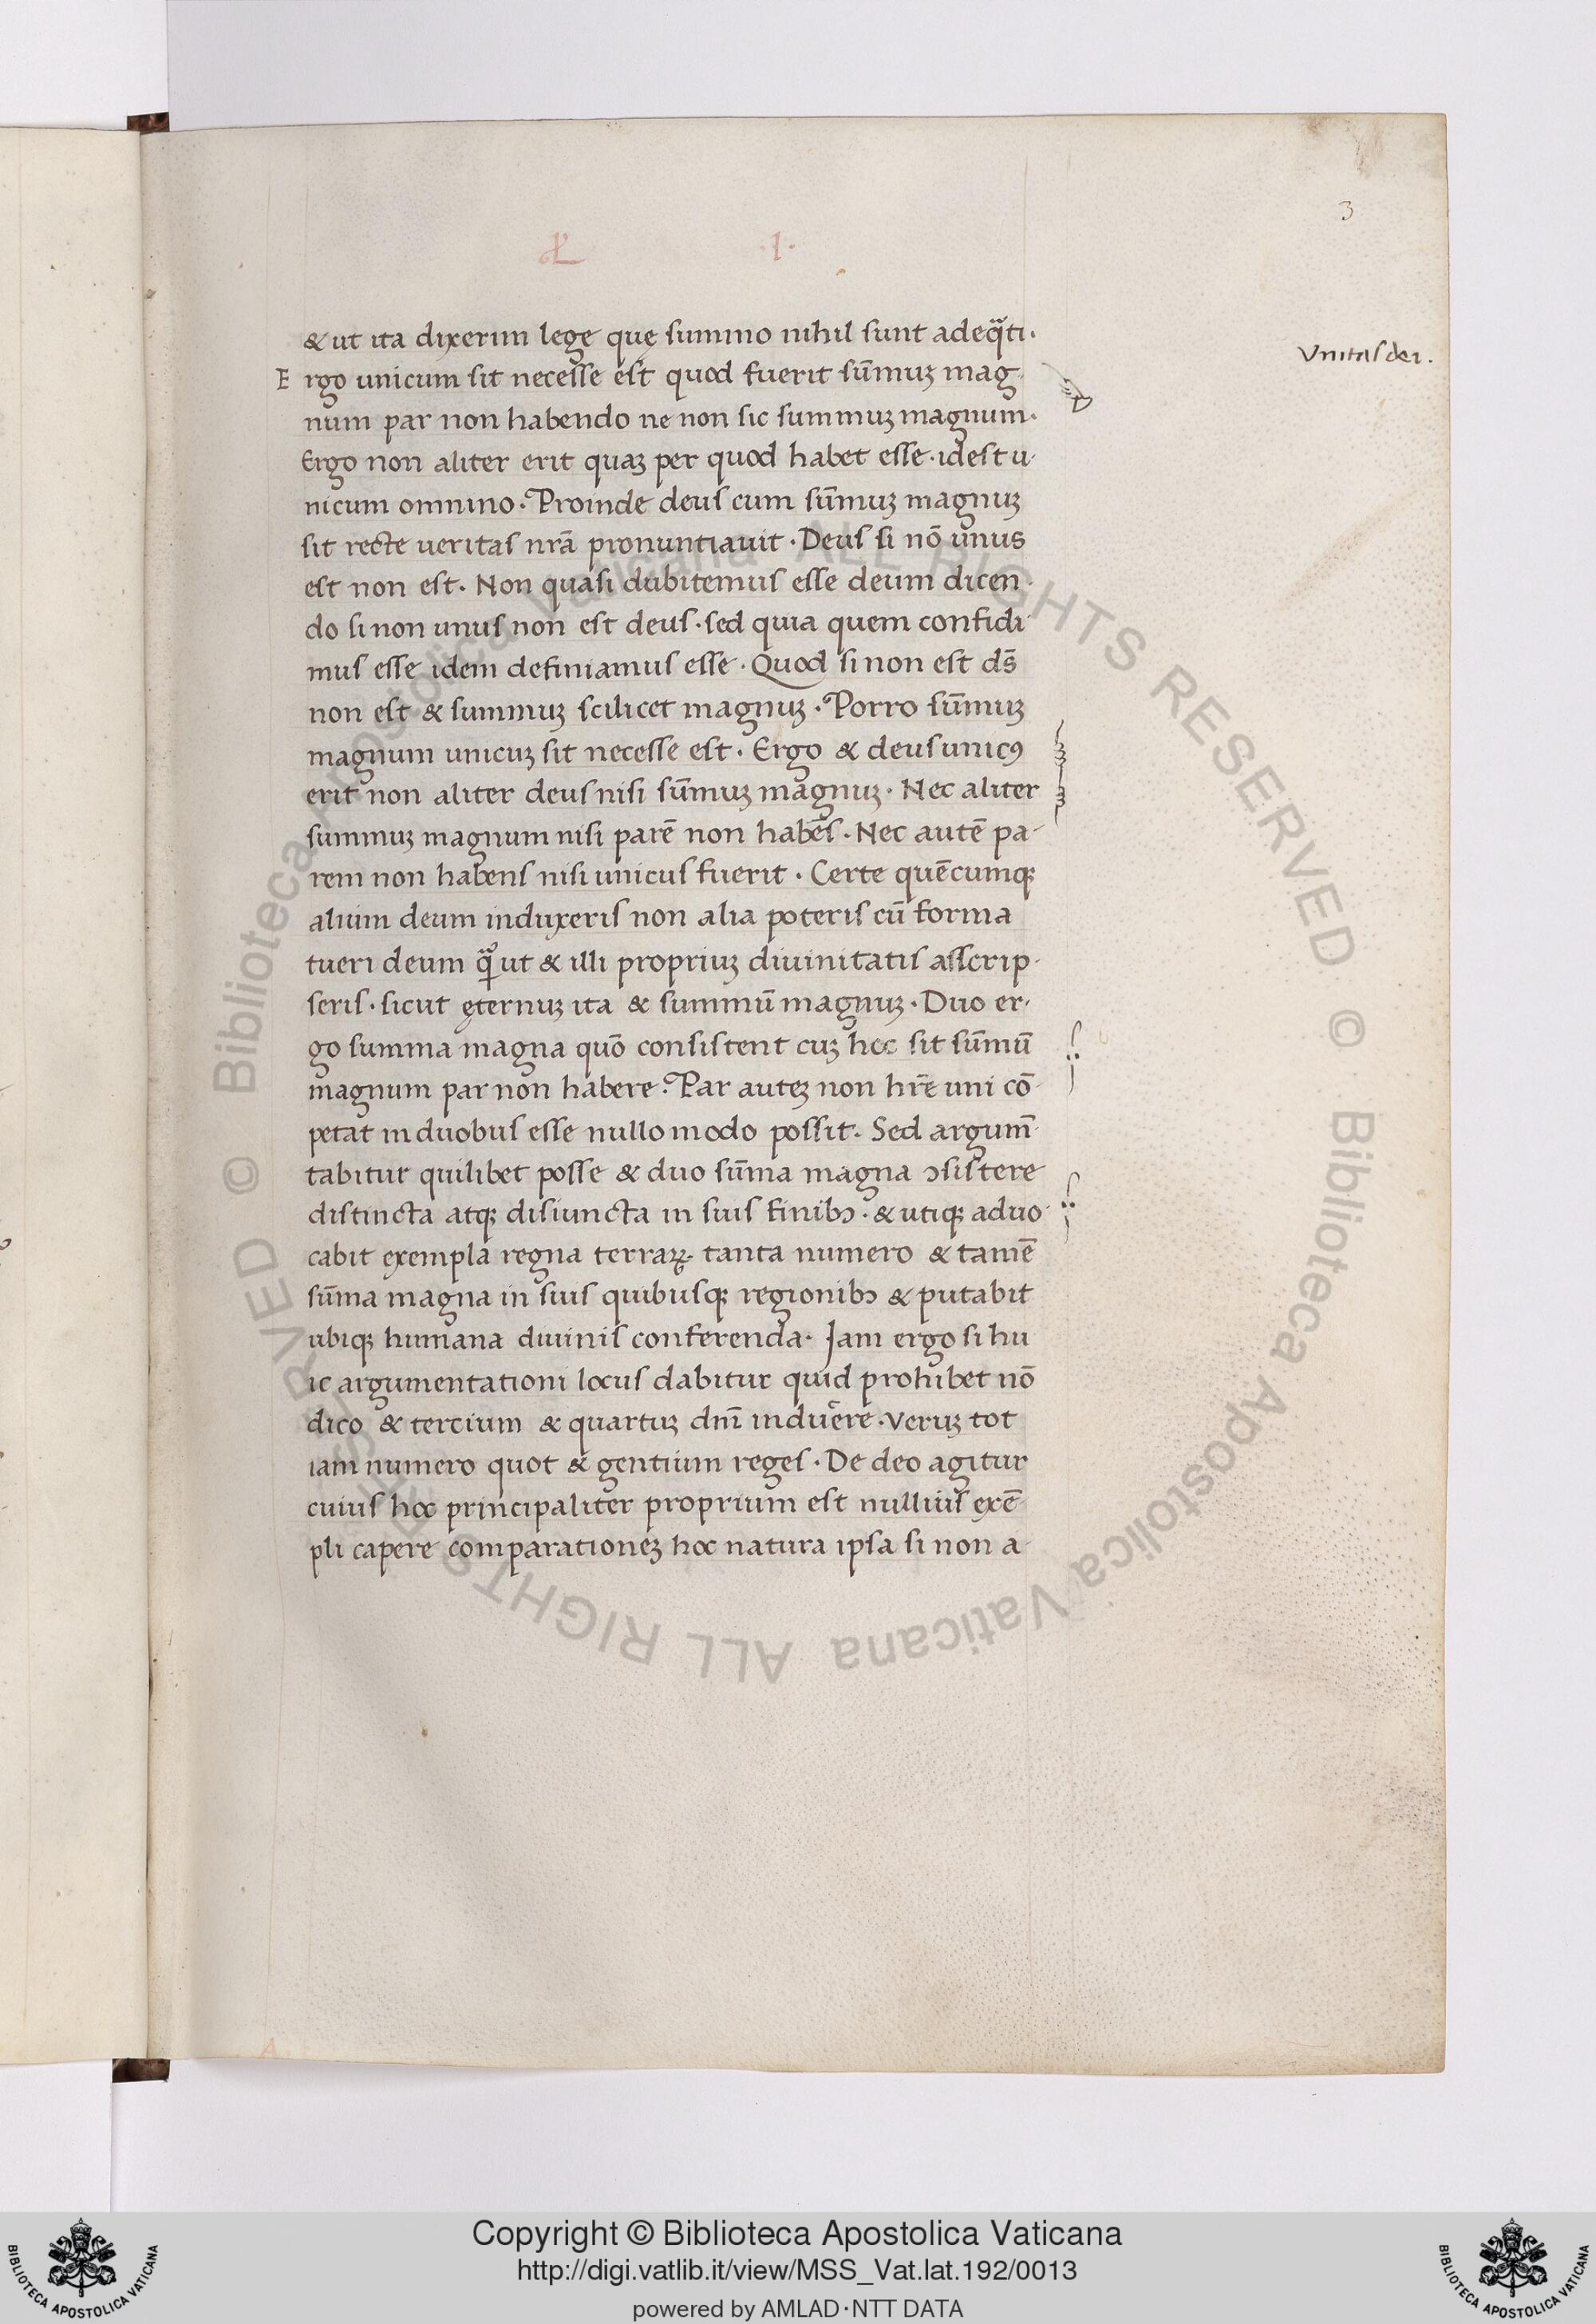 3
·I·
& ut ita dixerim lege quę summo nihil sunt adeq̃ti·
Vnitas dei.
Ergo unicum sit necesse est quod fuerit sum̄uꝫ mag-
num par non habendo ne non sic summuꝫ magnum·
Ergo non aliter erit quaꝫ per quod habet esse · idest u-
nicum omnino · Proinde deus cum sum̄uꝫ magnuꝫ
sit recte ueritas nr̄a pronuntiauit · Deus si nō unus
est non est · Non quasi dubitemus esse deum dicen-
do si non unus non est deus · sed quia quem confidi-
mus esse idem definiamus esse · Quod si non est ds̄
non est & summuꝫ scilicet magnuꝫ · Porro sum̄uꝫ
magnum unicuꝫ sit necesse est · Ergo & deus unicꝰ
erit non aliter deus nisi sum̄uꝫ magnuꝫ · Nec aliter
summuꝫ magnum nisi parē non habēs · Nec autē pa-
rem non habens nisi unicus fuerit · Certe quēcumqꝫ
alium deum induxeris non alia poteris cū forma
tueri deum ꝗ̃ ut & illi propriuꝫ diuinitatis asscrip-
seris · sicut ęternuꝫ ita & summū magnuꝫ · Duo er-
go summa magna quō consistent cuꝫ hoc sit sum̄ū
magnum par non habere? Par auteꝫ non hr̄e uni cō-
petat in duobus esse nullo modo possit · Sed argum̄-
tabitur quilibet posse & duo sum̄a magna ↄsistere
distincta atqꝫ disiuncta in suis finibↄ · & utiqꝫ aduo-
cabit exempla regna terraꝝ · tanta numero & tamē
sum̄a magna in suis quibusqꝫ regionibↄ & putabit
ubiqꝫ humana diuinis conferenda · Jam ergo si hu
ic argumentationi locus dabitur quid prohibet nō
dico & tercium & quartuꝫ dm̄ induc̄ere · Veruꝫ tot
iam numero quot & gentium reges · De deo agitur
cuius hoc principaliter proprium est nullius exē-
pli capere comparationeꝫ hoc natura ipsa si non a-
A
Copyright © Biblioteca Apostolica Vaticana
http://digi.vatlib.it/view/MSS_Vat.lat.192/0013
powered by AMLAD·NTT DATA
BIBLIOTECA APOSTOLICA VATICANA
BIBLIOTECA APOSTOLICA VATICANA
© Biblioteca Apostolica Vaticana ALL RIGHTS RESERVED © Biblioteca Apostolica Vaticana ALL RIGHTS RESERVED